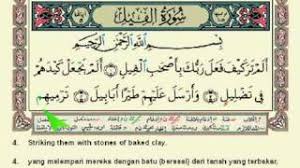 سُورَةُ الْفِيلِ
بِسْمِ اللَّهِ الرَّحْمَٰنِ الرَّحِيمِ
أَلَمْ تَرَ كَيْفَ فَعَلَ رَبُّكَ بِأَصْحَٰبِ الْفِيلِ ۝ أَلَمْ يَجْعَلْ كَيْدَهُمْ
فِي تَضْلِيلٍ ۝ وَأَرْسَلَ عَلَيْهِمْ طَيْرًا أَبَابِيلَ ۝ تَرْمِيهِم
4. Striking them with stones of baked clay.
4. yang melempari mereka dengan batu (berasal) dari tanah yang terbakar,